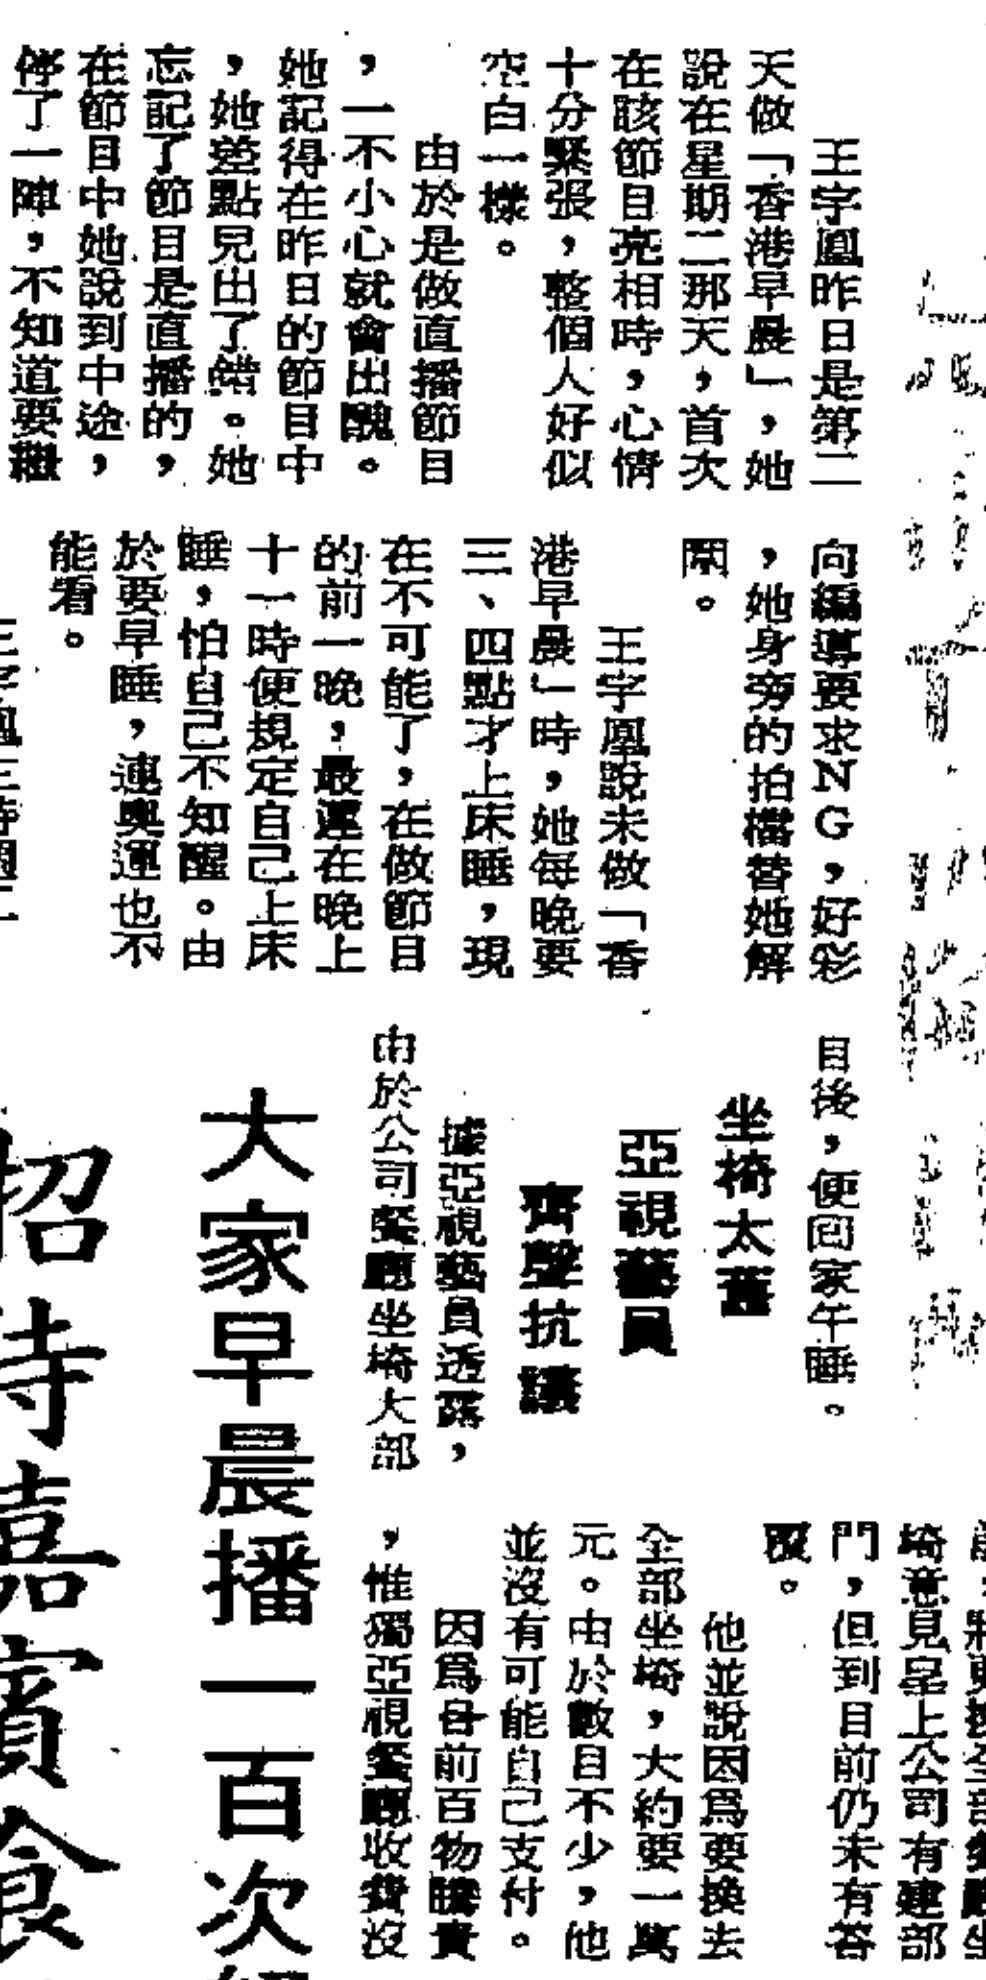 王宇凰昨日是第二
天做「香港早晨」，她
說在星期二那天，首次
在該節目亮相時，心情
十分緊張，整個人好似
空白一樣。
由於是做直播節目
，一不小心就會出醜。
她記得在昨日的節目中
，她差點兒出了錯。她
忘記了節目是直播的，
在節目中她說到中途，
停了一陣，不知道要繼
向編導要求NG，好彩
，她身旁的拍檔替她解
圍。
王宇凰說未做「香
港早晨」時，她每晚要
三、四點才上床睡，現
在不可能了，在做節目
的前一晚，最遲在晚上
十一時便規定自己上床
睡，怕自己不知醒。由
於要早睡，連奧運也不
能看。
目後，便回家午睡。
坐椅太舊
亞視藝員
齊聲抗議
據亞視藝員透露，
由於公司餐廳坐椅大部
椅意見呈上公司有建部
門，但到目前仍未有答
覆。
他並說因為要換去
全部坐椅，大約要一萬
元。由於數目不少，他
並沒有可能自己支付。
因為目前百物騰貴
，惟獨亞視餐廳收費沒
大家早晨播一百次
招待嘉賓食